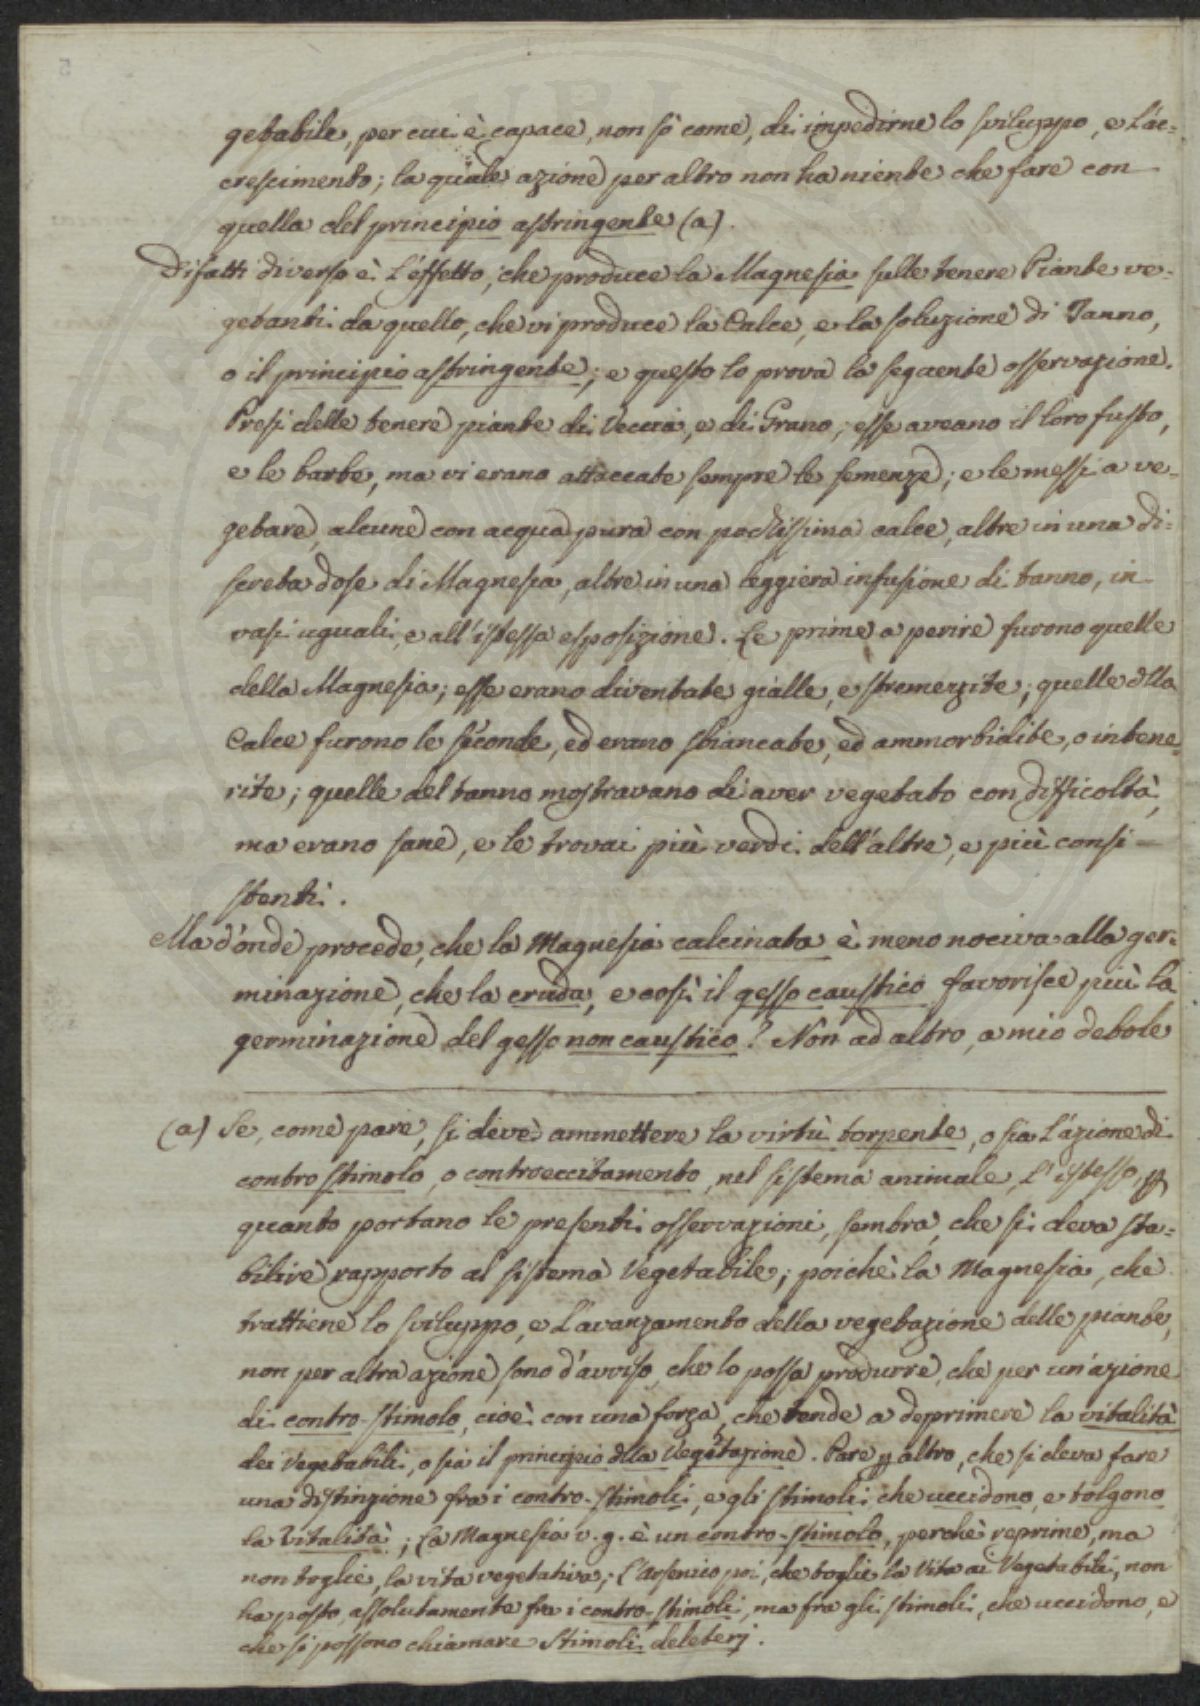 getabile, per cui è capace, non sò come, di impedirne lo sviluppo, e l'ac=
crescimento; la quale azione per altro non ha niente che fare con
quella del principio astringente (a).
Difatti diverso è l'effetto, che produce la Magnesia sulle tenere Piante ve-
getanti da quello, che vi produce la Calce, e la soluzione di Tanno,
o il principio astringente; e questo lo prova la seguente osservazione.
Presi delle tenere piante di Veccia, e di Grano; esse aveano il loro fusto,
e le barbe, ma vi erano attaccate sempre le semenze; e le messi a ve-
getare, alcune con acqua pura con pochissima calce, altre in una di-
screta dose di Magnesia, altre in una leggiera infusione di tanno, in
vasi uguali, e all'istessa esposizione. Le prime a perire furono quelle
della Magnesia; esse erano diventate gialle, e stremenzite; quelle dlla
Calce furono le seconde, ed erano sbiancate, ed ammorbidite, o intene=
rite; quelle del tanno mostravano di aver vegetato con difficoltà,
ma erano sane, e le trovai più verdi dell'altre, e più consi-
stenti.
Ma d'onde procede, che la Magnesia calcinata è meno nociva alla ger-
minazione, che la cruda, e così il gesso caustico favorisce più la
germinazione del gesso non caustico? Non ad altro, a mio debole
(a) Se, come pare, si deve ammettere la virtù torpente, o sia l'azione di
contro stimolo, o controeccitamento, nel sistema animale, l'istesso, p
quanto portano le presenti osservazioni, sembra, che si deva sta=
bilire rapporto al sistema Vegetabile; poichè la Magnesia, che
trattiene lo sviluppo, e l'avanzamento della vegetazione delle piante,
non per altra azione sono d'avviso, che lo possa produrre, che per un'azione
di contro-stimolo, cioè con una forza, che tende a deprimere la vitalità
dei Vegetabili, o sia il principio dlla Vegetazione. Pare p altro, che si deva fare
una distinzione fra i contro-stimoli, e gli stimoli che uccidono, e tolgono
la Vitalità; La Magnesia v. g. è un contro-stimolo, perchè reprime, ma
non toglie, la vita vegetativa; l'Arsenico poi, che toglie la Vita ai Vegetabili, non
ha posto, assolutamente fra i contro-stimoli, ma fra gli stimoli, che uccidono, e
che si possono chiamare Stimoli deleterj.